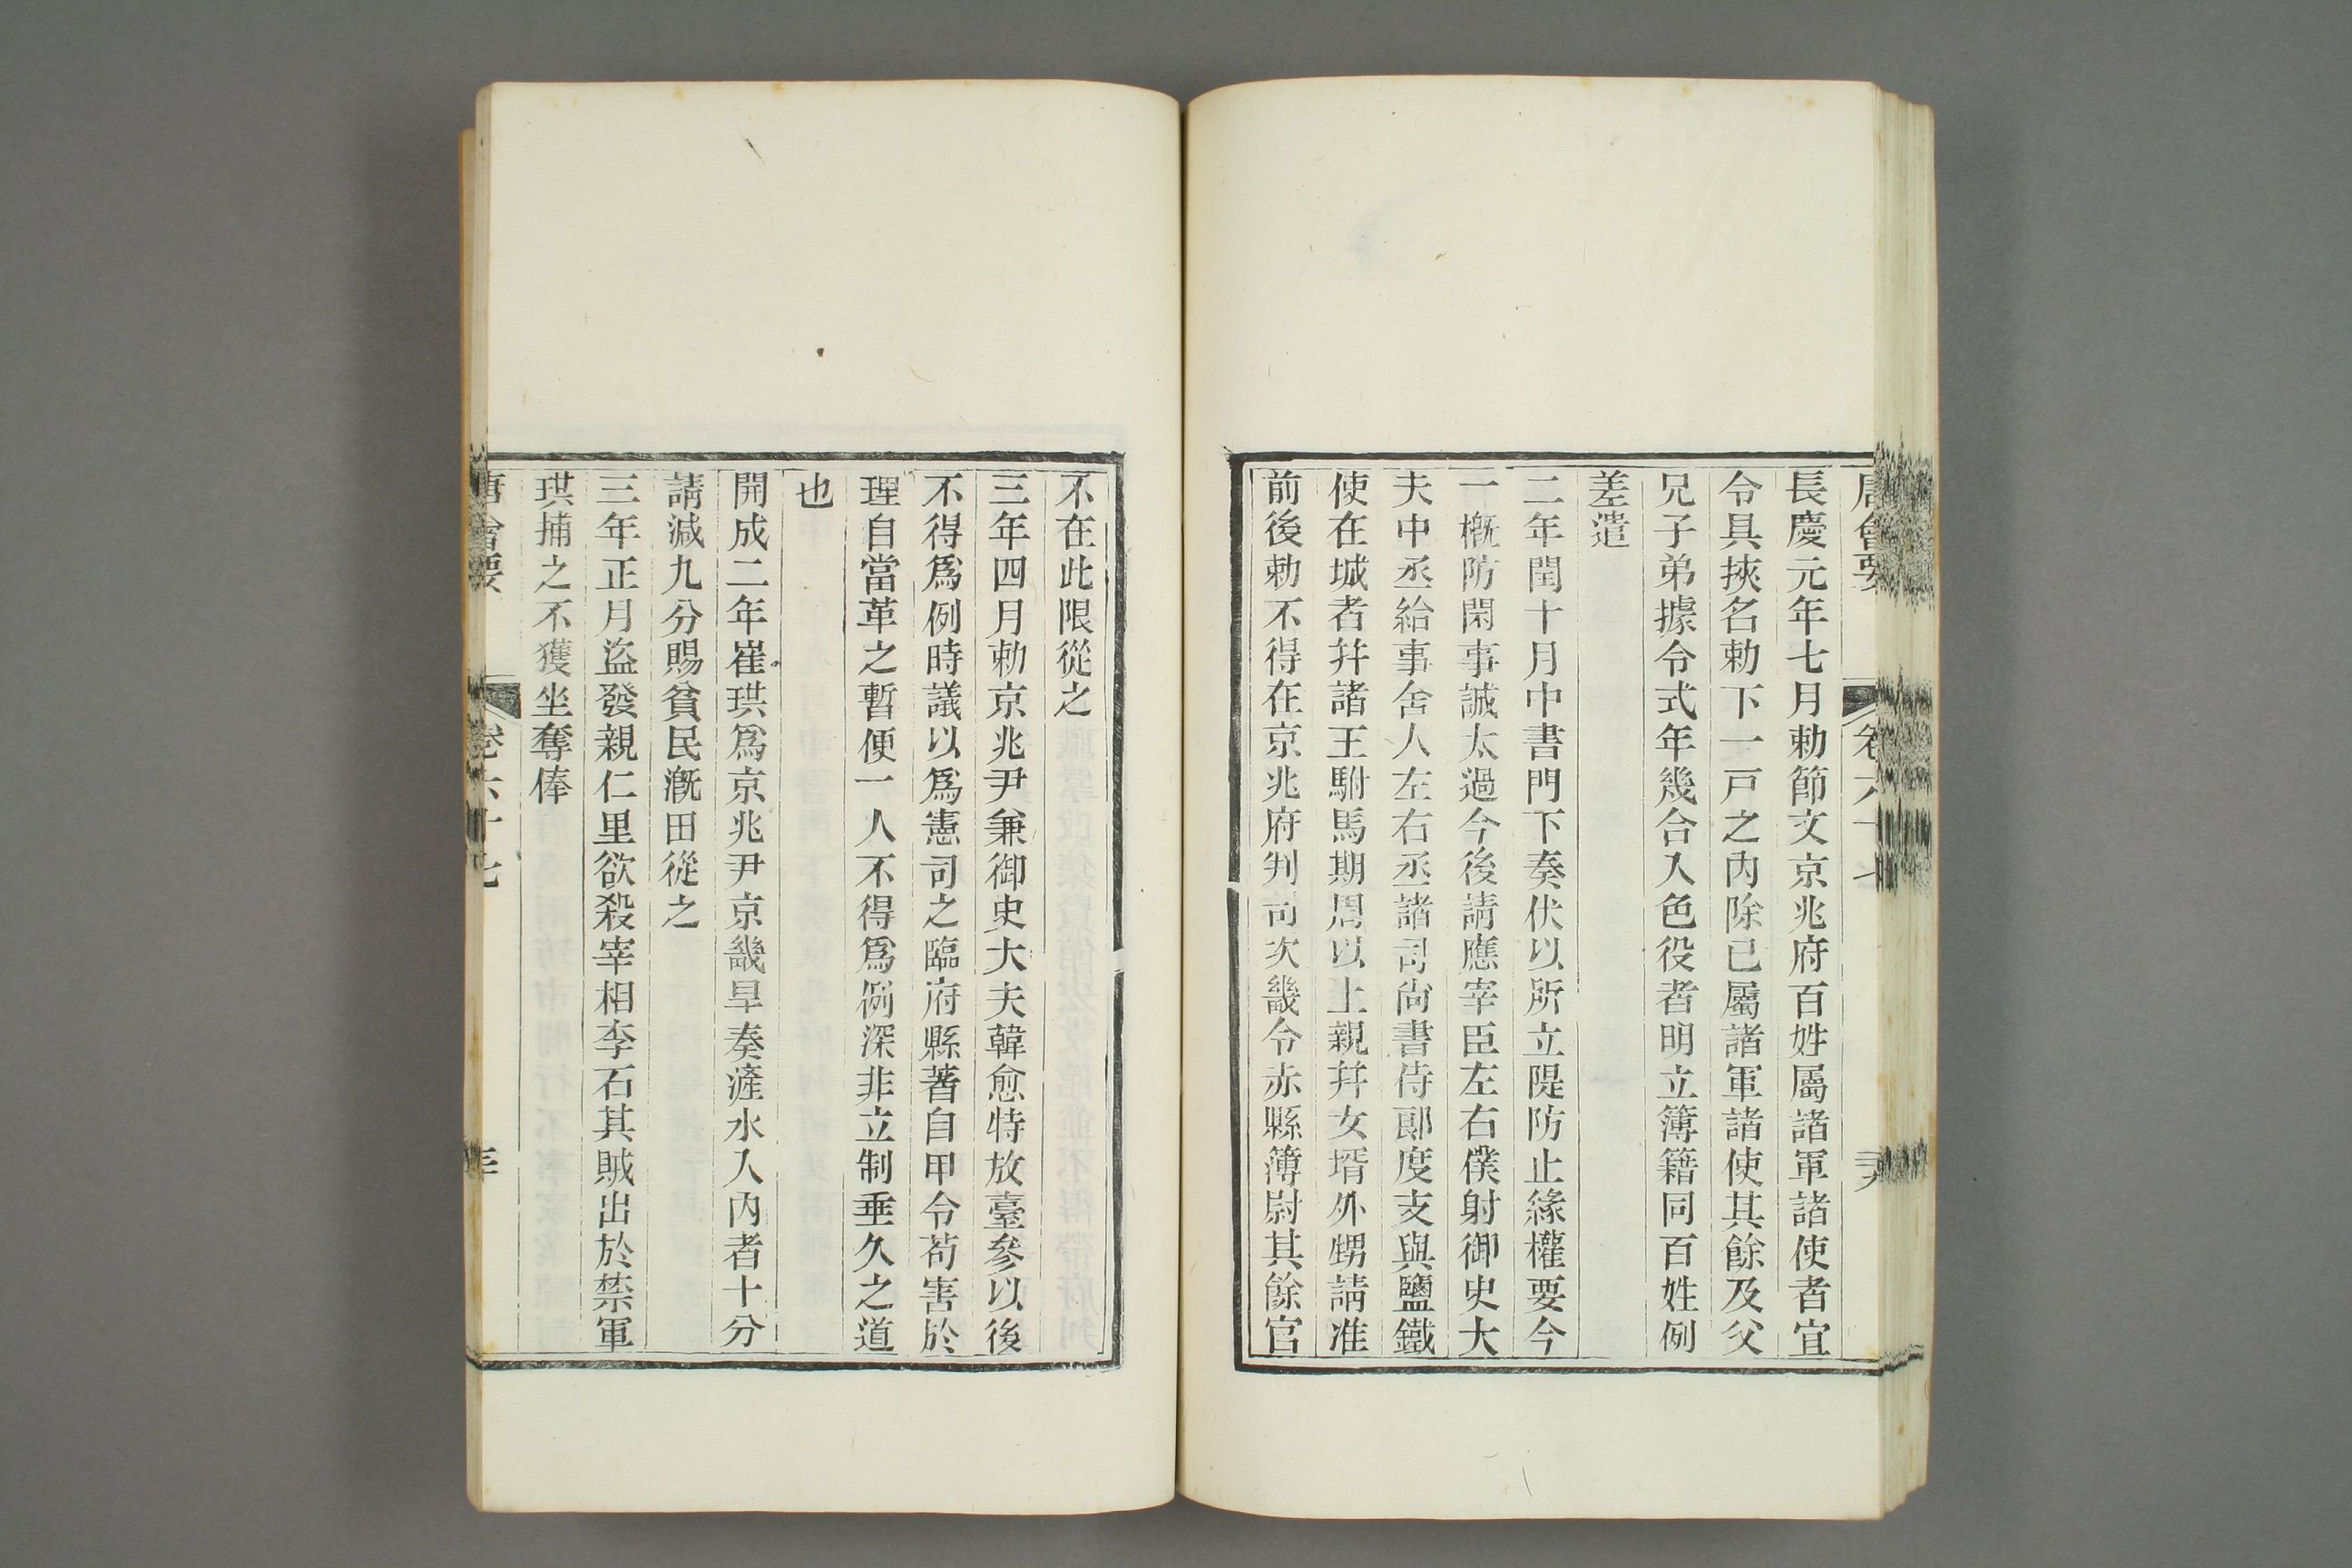 唐會要 卷六十七
長慶元年七月勅節文京兆府百姓屬諸軍諸使者宜
令具挾名勅下一戸之內除已屬諸軍諸使其餘及父
兄子弟據令式年幾合入色役者明立簿籍同百姓例
差遣
二年閏十月中書門下奏伏以所立隄防止緣權要今
一槪防閑事誠太過今後請應宰臣左右僕射御史大
夫中丞給事舍人左右丞諸司尚書侍郞度支與鹽鐵
使在城者幷諸王駙馬期周以上親幷女壻外甥請准
前後勅不得在京兆府判司次畿令赤縣簿尉其餘官
不在此限從之
三年四月勅京兆尹兼御史大夫韓愈特放臺參以後
不得爲例時議以爲憲司之臨府縣著自甲令苟害於
理自當革之暫便一人不得爲例深非立制垂久之道
也
開成二年崔珙爲京兆尹京畿旱奏滻水入內者十分
請減九分賜貧民漑田從之
三年正月盜發親仁里欲殺宰相李石其賊出於禁軍
珙捕之不獲坐奪俸
唐會要 卷六十七